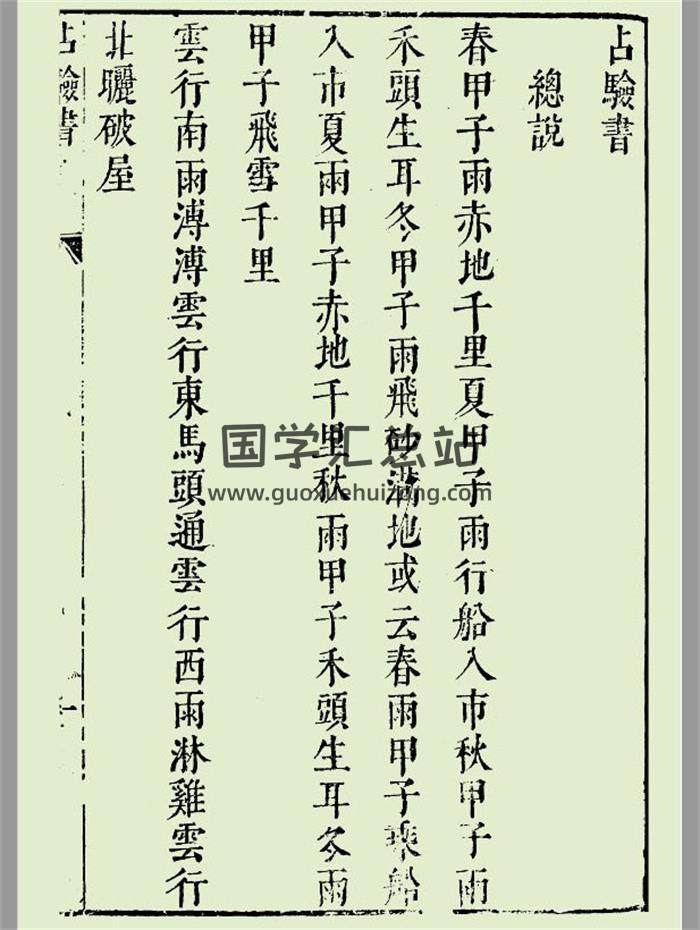 占驗書
總說
春甲子雨赤地千里夏甲子雨行船入市秋甲子雨
禾頭生耳冬甲子雨飛砂滿地或云春雨甲子乘船
入市夏雨甲子赤地千里秋雨甲子禾頭生耳冬雨
甲子飛雪千里
雲行南雨溥溥雲行東馬頭通雲行西雨淋雞雲行
北曬破屋
占驗書
一
国学汇总站
www.guoxuehuizong.com